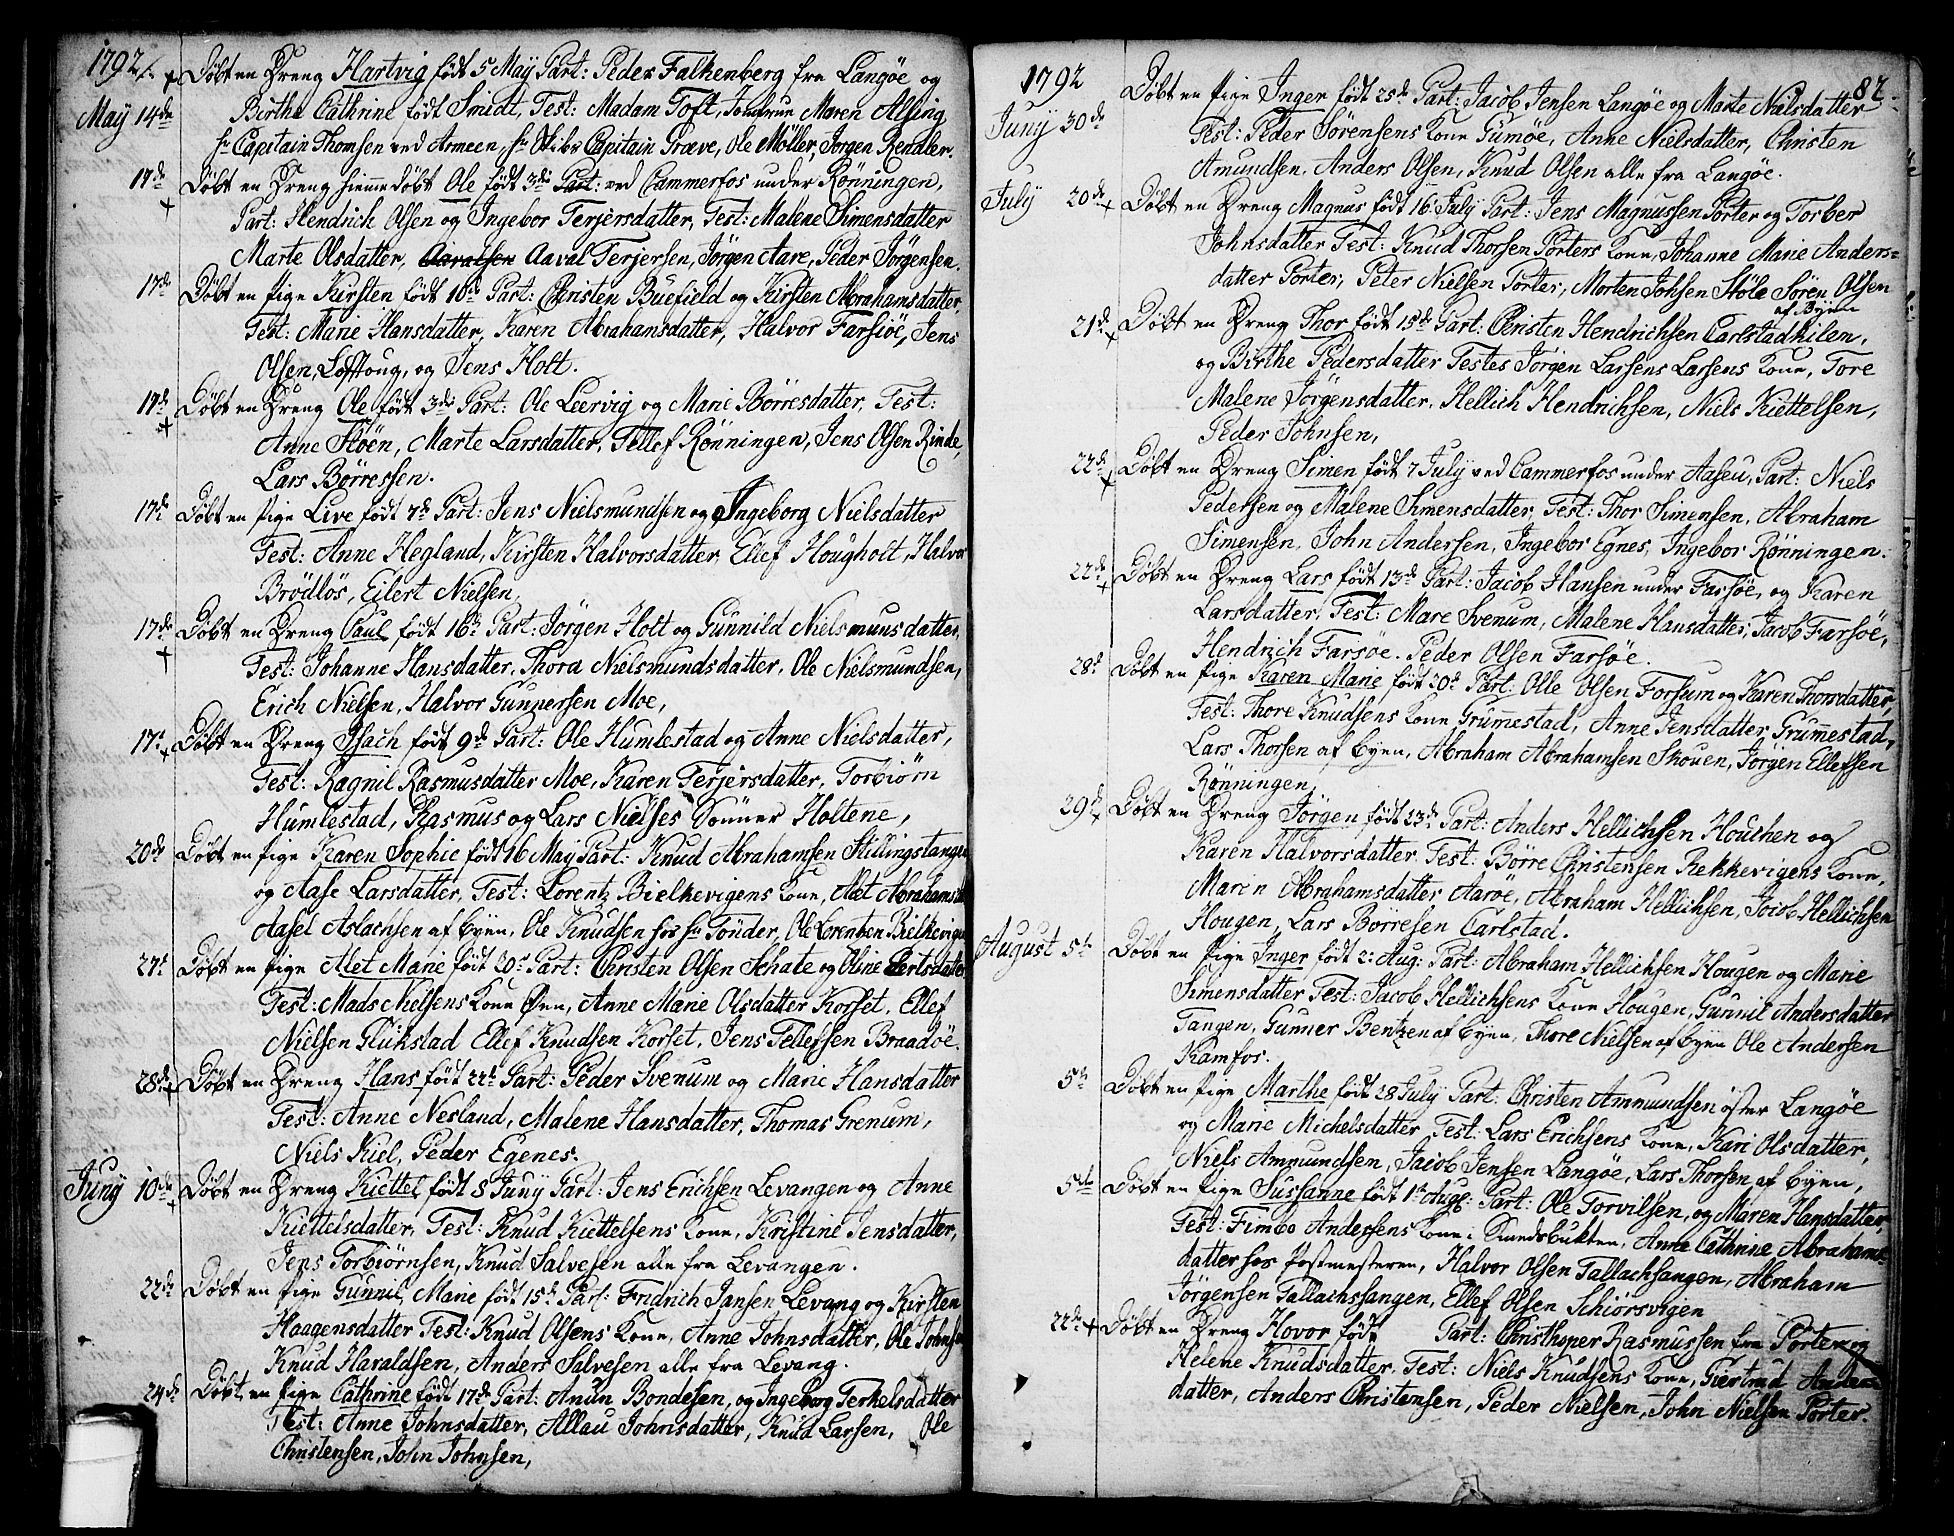 1792
Døbt en Dreng Hartvig født 5 May Part: Peder Falkenberg fra Langøe og
May 14de Birthe Cathrine født Smidt, Test: Madam Toft, Jomfrue Maren Alsing
Hr Capitain Thomsen ved Armeen, Hr Skibs Capitain Græve, Ole Möller, Jörgen Rendler.
17de Döbt en Dreng hiemmedöbt Ole født 3de Part: ved Cammerfos under Rönningen,
Part: Hendrich Olsen og Ingebor Terjersdatter, Test: Malene Simensdatter
Marte Olsdatter, Aavalsen Aaval Terjersen, Jörgen Aare, Peder Jörgensen.
17de Döbt en pige Kirsten født 10de Part: Christen Buefield og Kirsten Abrahamsdatter,
Test: Marie Hansdatter, Karen Abrahamsdatter, Halvor Farsiöe, Jens
Olsen, Lofftoug, og Jens Holt.
17de Döbt en Dreng Ole født 3de Part: Ole Leervig og Marie Börresdatter, Test:
Anne Støen, Marte Larsdatter, Tellef Rönningen, Jens Olsen Rinde,
Lars Börressen.
17de Döbt en pige Live født 7de Part: Jens Nielsmundsen og Ingeborg Nielsdatter
Test: Anne Hegland, Kirsten Halvorsdatter, Ellef Hougholt, Halvor
Brödlös, Eilert Nielsen,
17de Döbt en Dreng Paul født 16de Part: Jörgen Holt og Gunnild Nielsmunsdatter,
Test: Johanne Hansdatter, Thora Nielsmundsdatter, Ole Nielsmundsen,
Erich Nielsen, Halvor Gunnersen Moe,
17de Döbt en Dreng Isach født 9de Part: Ole Humlestad og Anne Nielsdatter,
Test: Ragnil Rasmusdatter Moe, Karen Terjersdatter, Torbiörn
Humlestad, Rasmus og Lars Nielses Sönner Holtene,
20de Döbt en pige Karen Sophie født 16 May Part: Knud Abrahamsen Stillingstangen
og Aase Larsdatter, Test: Lorentz Bielkevigens Kone, Alet Abrahamsdatter
Aasel Aslachsen af byen, Ole Knudsen hos Hr Tönder, Ole Lorentsen Bielkevigen
27de Döbt en pige Alet Marie født 20de Part: Christen Olsen Schate og Oline Bertsdatter
Test: Mads Nielsens Kone Øen, Anne Marie Olsdatter Korset, Ellef
Nielsen Glükstad Ellef Knudsen Korset, Jens Tellefsen Braadöe.
28de Döbt en Dreng Hans født 22de Part: Peder Svenum og Marie Hansdatter
Test: Anne Nesland, Malene Hansdatter, Thomas Grenum,
Niels Kiel, Peder Egenes.
Juny 10de Döbt en Dreng Kiettel født 8 Juny Part: Jens Erichsen Levangen og Anne
Kiettelsdatter, Test: Knud Kiettelsens Kone, Kristine Jensdatter,
Jens Torbiörnsen, Knud Salvesen alle fra Levangen.
22de Döbt en pige Gunnil Marie født 15de Part: Fridrich Jansen Levang og Kirsten
Haagensdatter Test: Knud Olsens Kone, Anne Johnsdatter, Ole Johnsen
Knud Haraldsen, Anders Salvesen alle fra Levang.
24de Döbt en pige Cathrine født 17de Part: Anun Bondesen, og Ingeborg Terkelsdatter
Test: Anne Johnsdatter, Allau Johnsdatter, Knud Larsen, Ole
Christensen, John Johnsen,
1792 82.
Juny 30de Döbt en pige Inger født 25de Part: Jacob Jensen Langöe og Marte Nielsdatter
Test: Peder Sörensens Kone Gumöe, Anne Nielsdatter, Christen
Amundsen, Anders Olsen, Knud Olsen alle fra Langöe.
July 20de Döbt en Dreng Magnus født 16 July Part: Jens Magnussen Porter og Torber
Johnsdatter Test: Knud Thorsen Porters Kone, Johanne Marie Anders-
datter Porter, Peter Nielsen Porter, Morten Johsen Støle Sören Olsen
af Byen
21de Döbt en Dreng Thor født 15de Part: Christen Hendrichsen Carlstadkilen,
og Birthe Pedersdatter Testes Jörgen Larsens Larsens Kone, Tore
Malene Jörgensdatter, Hellich Hendrichsen, Niels Kiettelsen,
Peder Johnsen,
22de Döbt en Dreng Simen født 7 July ved Cammerfos under Aaseu, Part: Niels
Pedersen og Malene Simensdatter, Test: Thor Simensen, Abraham
Simensen, John Andersen, Ingebor Egnes, Ingebor Rönningen.
22de Döbt en Dreng Lars født 13de Part: Jacob Hansen under Farsöe, og Karen
Larsdatter, Test: Mare Svenum, Malene Hansdatter, Jacob Farsöe,
Hendrich Farsöe. Peder Olsen Farsöe.
28de Döbt en pige Karen Marie født 20de Part: Olle Olsen Forsum og Karen Thorsdatter,
Test: Thore Knudsens Kone Grumestad, Anne Jensdatter Grumestad,
Lars Thorsen af byen, Abraham Abrahamsen Skouen, Jörgen Ellefsen
Rönningen,
29de Döbt en Dreng Jörgen født 23de Part: Anders Hellichsen Houchen og
Karen Halvorsdatter, Test: Börre Christensen Rekkevigens Kone,
Maren Abrahamsdatter Aaröe, Abraham Hellichsen, Jocob Hellichsen
Hougen, Lars Börresen Carlstad.
August 5te Döbt en pige Inger født 2: Aug: Part: Abraham Hellichsen Hougen og Marie
Simensdatter Test: Jacob Hellichsens Kone Hougen, Gunnil Andersdatter
Tangen, Gunner Bentzen af byen, Thore Nielsen af byen Ole Andersen
Kamfos.
5te Döbt en pige Marthe født 28 July Part: Christen Ammundsen öster Langöe
og Marie Michelsdatter, Test: Lars Erichsens Kone, Kari Olsdatter,
Niels Ammundsen, Jacob Jensen Langöe, Lars Thorsen af byen,
5te Döbt en pige Sussanne født 1te Aug: Part: Ole Torvilsen, og Maren Hansdatter,
Test: Fimbo Andersens Kone i Smedsbukten, Anne Cathrine Abrahams-
datter hos Postmesteren, Halvor Olsen Tallachsangen, Abraham
Jörgensen Tallachssangen, Ellef Olsen Schiörsvigen
22de Döbt en Dreng Hovor født Part: Christhoper Rasmussen fra Porter og
Helene Knudsdatter, Test: Niels Knudsens Kone, Giertrud Anders
datter, Anders Christensen, Peder Nielsen, John Nielsen Porter.